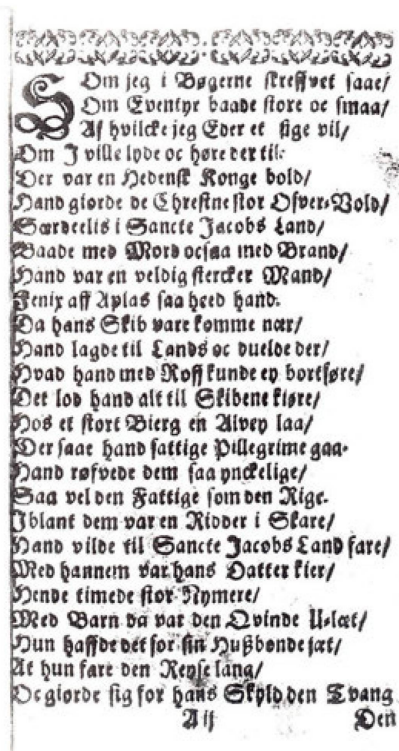 SOm jeg i Bøgerne skreffvet saae/
Om Eventyr baade store oc smaa/
Af hvilcke jeg Eder et sige vil/
Om I ville lyde oc høre der til:
Der var en Hedensk Konge bold/
Hand giorde de Chrestne stor Ofver-Vold/
Særdeelis i Sancte Jacobs Land/
Baade med Mord ocsaa med Brand/
Hand var en veldig stercker Mand/
Fenix aff Aplas saa heed hand.
Da hans Skib vare komme nær/
Hand lagde til Lands oc duelde der/
Hvad hand med Roff kunde ey bortføre/
Det lod hand alt til Skibene kiøre/
Hos et stort Bierg en Alvey laa/
Der saae hand fattige Pillegrime gaa.
Hand røfvede dem saa ynckelige/
Saa vel den Fattige som den Rige.
Iblant dem var en Ridder i Skare/
Hand vilde til Sancte Jacobs Land fare/
Med hannem var hans Datter kier/
Hende timede stor Nymere/
Med Barn da var den Qvinde
Hun haffde det for sin Hußbonde jæt/
At hun fare den Reyse lang/
Oc giorde sig for hans Skyld den Tvang
A ij Den